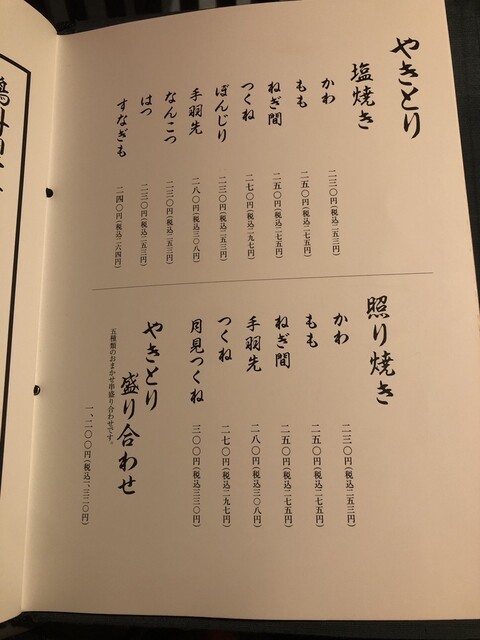 やきとり
塩焼き
かわ 二三〇円(税込二五三円)
もも 二五〇円(税込二七五円)
ねぎ間 二五〇円(税込二七五円)
つくね 二七〇円(税込二九七円)
ぼんじり 二三〇円(税込二五三円)
手羽先 二八〇円(税込三〇八円)
なんこつ 二三〇円(税込二五三円)
はつ 二三〇円(税込二五三円)
すなぎも 二四〇円(税込二六四円)
照り焼き
かわ 二三〇円(税込二五三円)
もも 二五〇円(税込二七五円)
ねぎ間 二五〇円(税込二七五円)
手羽先 二八〇円(税込三〇八円)
つくね 二七〇円(税込二九七円)
月見つくね 三〇〇円(税込三三〇円)
やきとり
盛り合わせ
五種類のおまかせ串盛り合わせです。
一、二〇〇円(税込一、三二〇円)